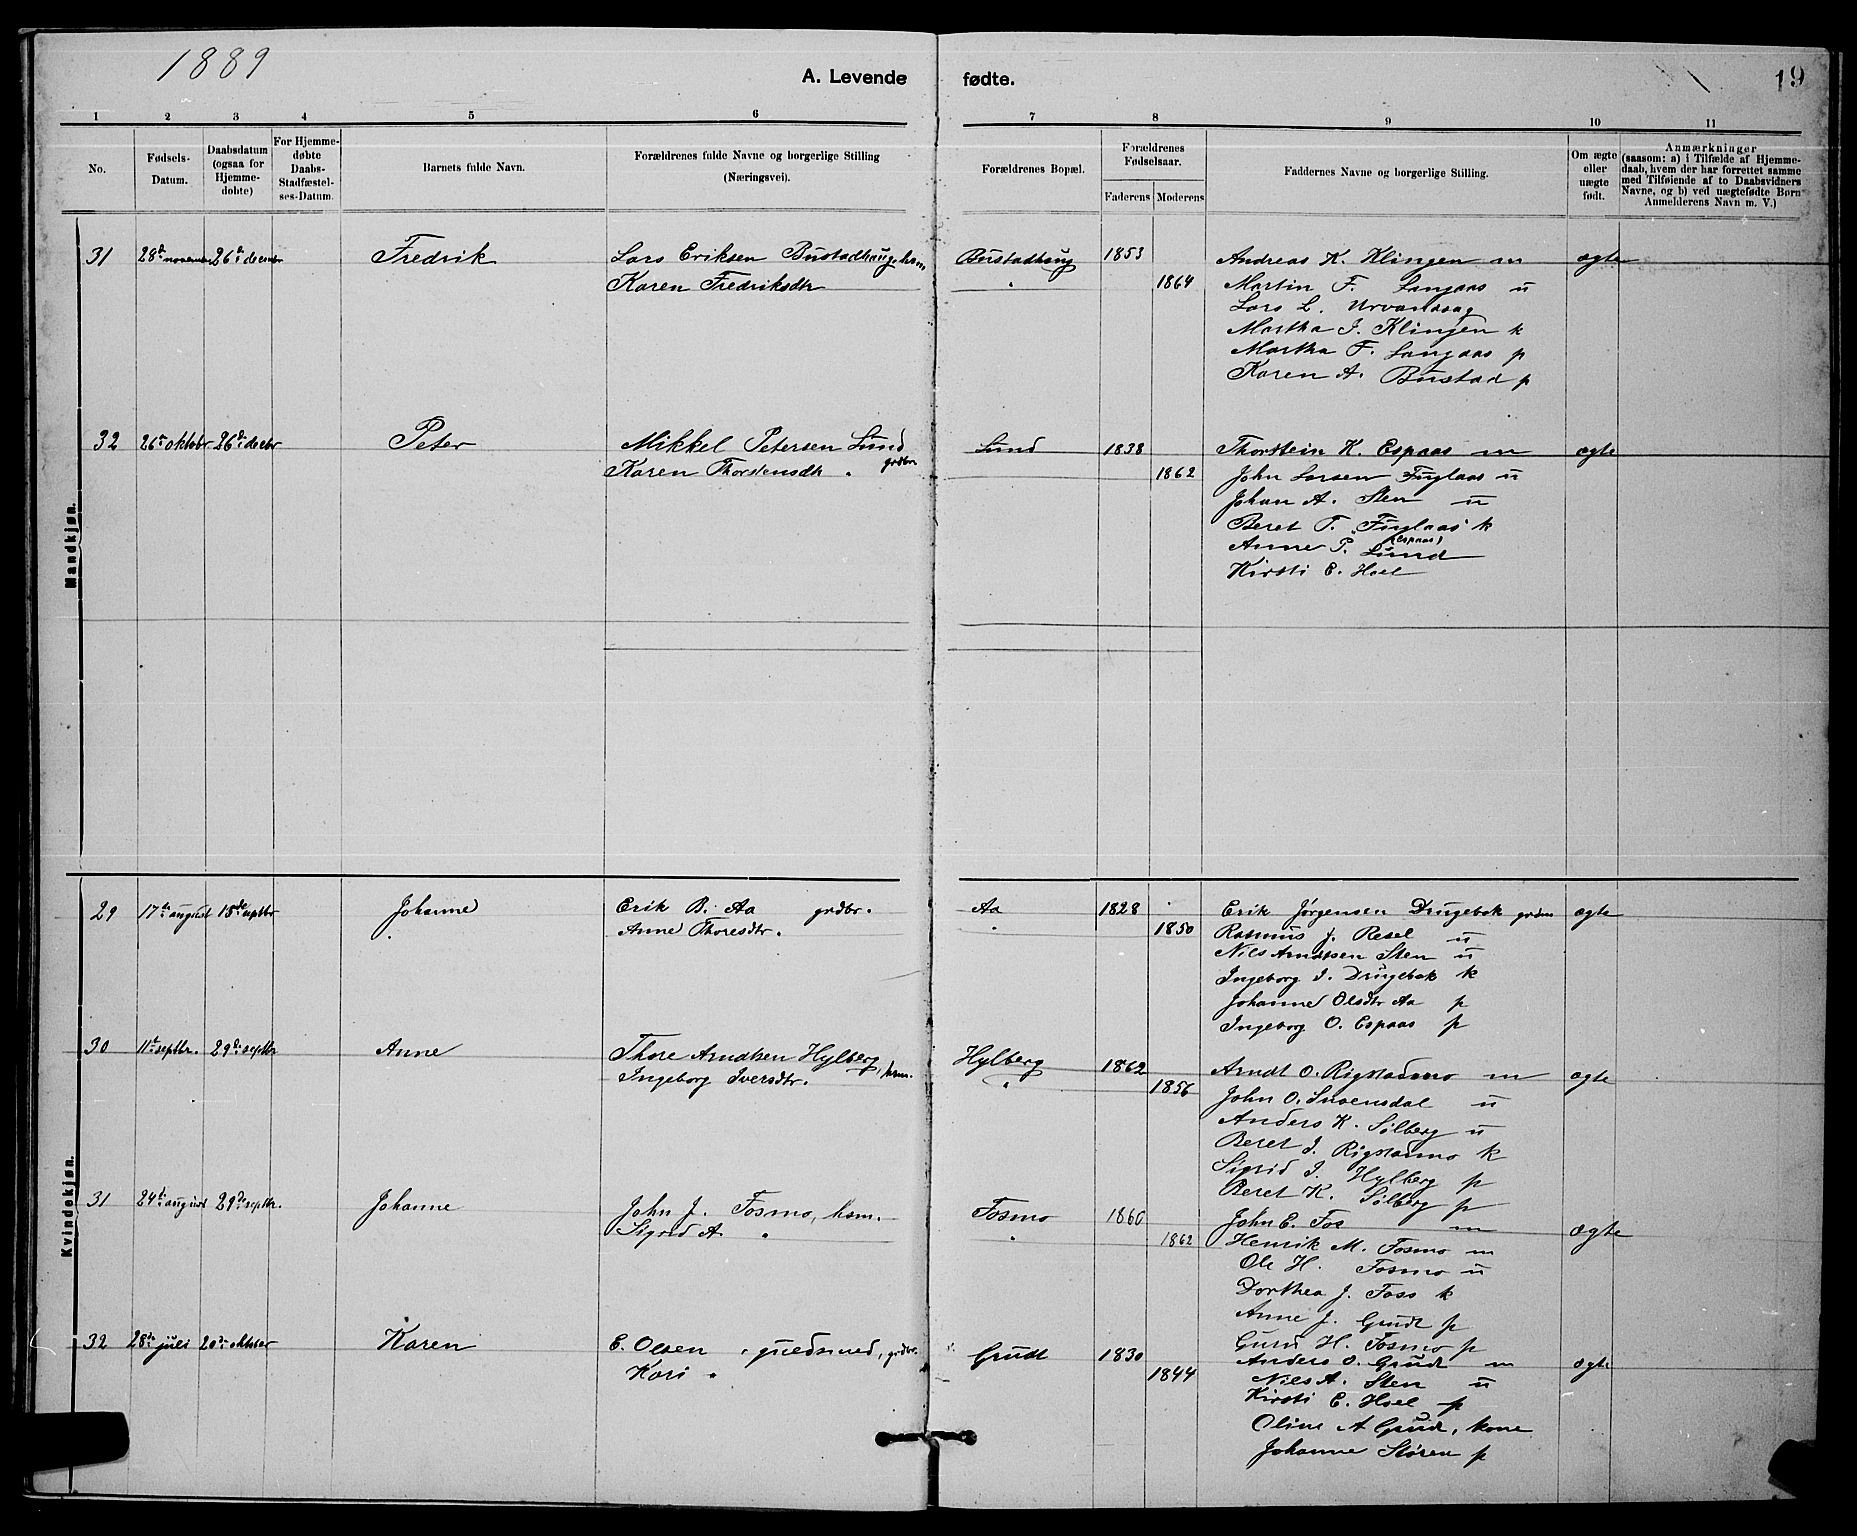 1889
A. Levende fødte.
19
1 2 3 4 5 6 7 8 9 10 11
No.
Fødsels-Datum.
Daabsdatum (ogsaa for Hjemmedøbte)
For Hjemmedøbte Daabs-Stadfæstelses-Datum.
Barnets fulde Navn.
Forældrenes fulde Navne og borgerlige Stilling (Næringsvei).
Forældrenes Bopæl.
Forældrenes Fødselsaar.
Faderens Moderens
Faddernes Navne og borgerlige Stilling.
Om ægte eller uægte født.
Anmærkninger
(saasom: a) i Tilfælde af Hjemmedaab, hvem der har forrettet samme med Tilføiende af to Daabsvidners Navne, og b) ved uægtefødte Børn Anmelderens Navn m. V.)
Mandkjøn.
31 28de november 26de i decmbr Fredrik Lars Eriksen Bustadhaug, hsm Bustadhaug 1853 Andreas K. Klingen m ægte
Karen Fredriksdtr " 1864 Martin F. Langaas u
Lars L. Urvandsag
Martha J. Klingen k
Martha F. Langaas p
Karen A. Bustad p
32 26de oktobr 26de i decbr Peter Mikkel Petersen Lund Lund 1838 Thorstein K. Espaas m ægte
Karen Thorstensdtr. grdbr 1862 John Larsen Fuglaas u
Johan A. Sten u
Beret T. Fuglaas k
(Espaas)
Anne P. Lund
Kirsti E. Hoel
Kvindekjøn.
29 17de august 15de septbr Johanne Erik B. Aa grdbr. Aa 1828 Erik Jørgensen Drugebak grdm ægte
Anne Thoresdtr. " 1850 Rasmus J. Resel u
Nils Arndtsen Sten u
Ingeborg J. Drugebak k
Johanne Olsdtr Aa p
Ingeborg O. Espaas p
30 11te septbr. 29de septbr Anne Thore Arndtsen Hylberg, hsm. Hylberg 1862 Arndt O. Rigstadmo m ægte
Ingeborg Iversdtr. " 1856 John O. Svoensdal u
Anders K. Sølberg u
Beret J. Rigstadmo k
Sigrid J. Hylberg p
Beret K. Sølberg p
31 24de august 29de septbr. Johanne John J. Fosmo, hsm. Fosmo 1860 John E. Fos m ægte
Sigrid A " " 1862 Henrik M. Fosmo m
Ole H. Fosmo u
Dorthea J. Foss k
Anne J. Grudt p
Guru H. Fosmo p
32 28de juli 20de oktober Karen E. Olsen, guldsmed, grdbr. Grudt 1830 Anders O. Grudt m ægte
Kari " 1844 Nils A. Sten u
Kirsti E. Hoel p
Oline A Grudt, kone
Johanne Støren p